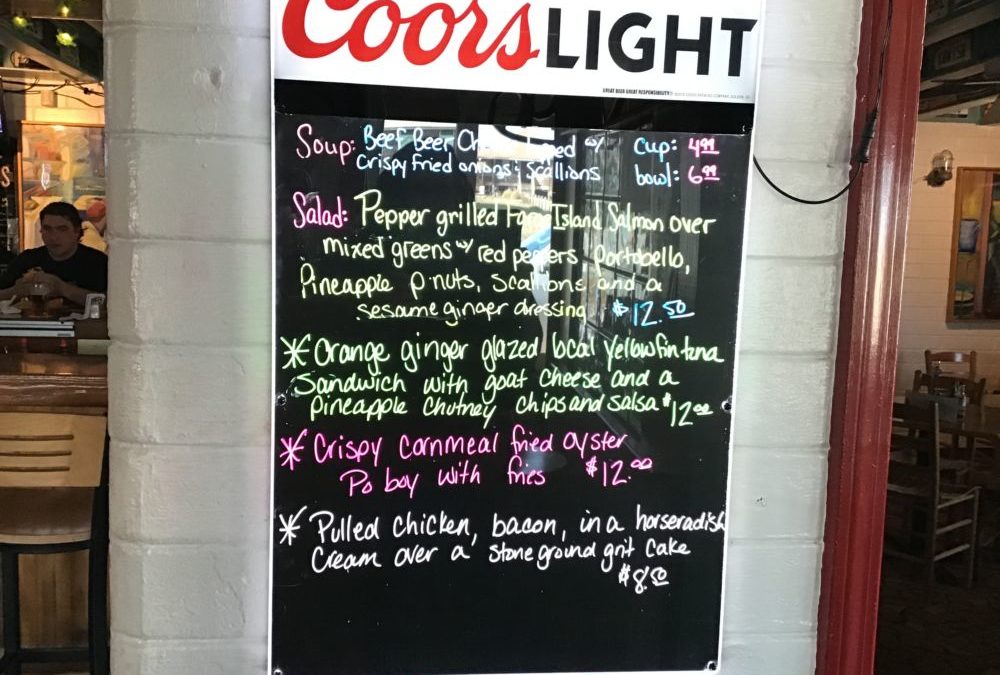 Coors LIGHT
GREAT BEER GREAT RESPONSIBILITY
Soup: Beef Beer w/ cup: 4.99
crispy fried onions; scallions bowl: 6.99
Salad: Pepper grilled Island Salmon over
mixed greens w/ red peppers Portobello,
Pineapple p'nuts, scallions and a
sesame ginger dressing $12.50
* Orange ginger glazed local yellowfin tuna
Sandwich with goat cheese and a
pineapple chutney chips and salsa $12.00
* Crispy cornmeal fried oyster
Po boy with fries $12.00
* Pulled chicken, bacon, in a horseradish
cream over a stoneground grit cake
$8.50